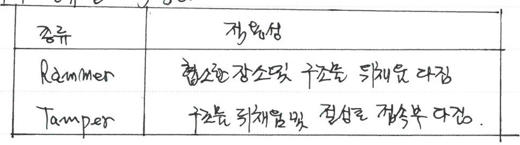 종류 적용성
Rammer 협소한 장소 및 구조물 뒤채움 다짐
Tamper 구조물 뒤채움 및 절성토 접속부 다짐.